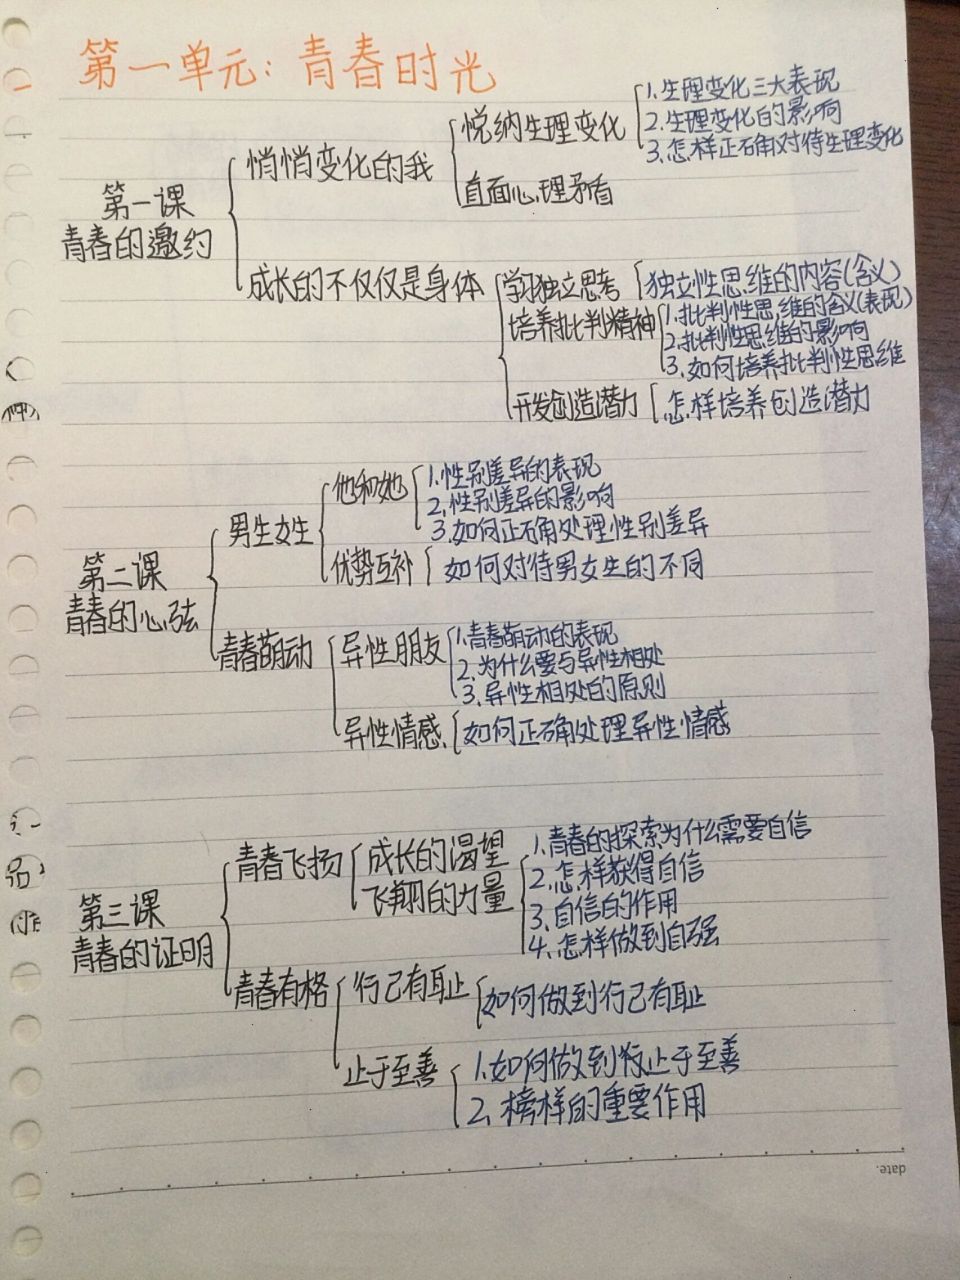 第一单元：青春时光
第一课
青春的邀约
悄悄变化的我
悦纳生理变化
1.生理变化三大表现
2.生理变化的影响
3.怎样正确对待生理变化
直面心理矛盾
成长的不仅仅是身体
学习独立思考
独立性思维的内容(含义)
培养批判精神
1.批判性思维的含义(表现)
2.批判性思维的影响
3.如何培养批判性思维
开发创造潜力
怎样培养创造潜力
第二课
青春的心弦
男生女生
他和她
1.性别差异的表现
2.性别差异的影响
3.如何正确处理性别差异
优势互补
如何对待男女生的不同
青春萌动
异性朋友
1.青春萌动的表现
2.为什么要与异性相处
3.异性相处的原则
异性情感
如何正确处理异性情感
第三课
青春的证明
青春飞扬
成长的渴望
飞翔的力量
1.青春的探索为什么需要自信
2.怎样获得自信
3.自信的作用
4.怎样做到自强
青春有格
行己有耻
如何做到行己有耻
止于至善
1.如何做到止于至善
2.榜样的重要作用
date.